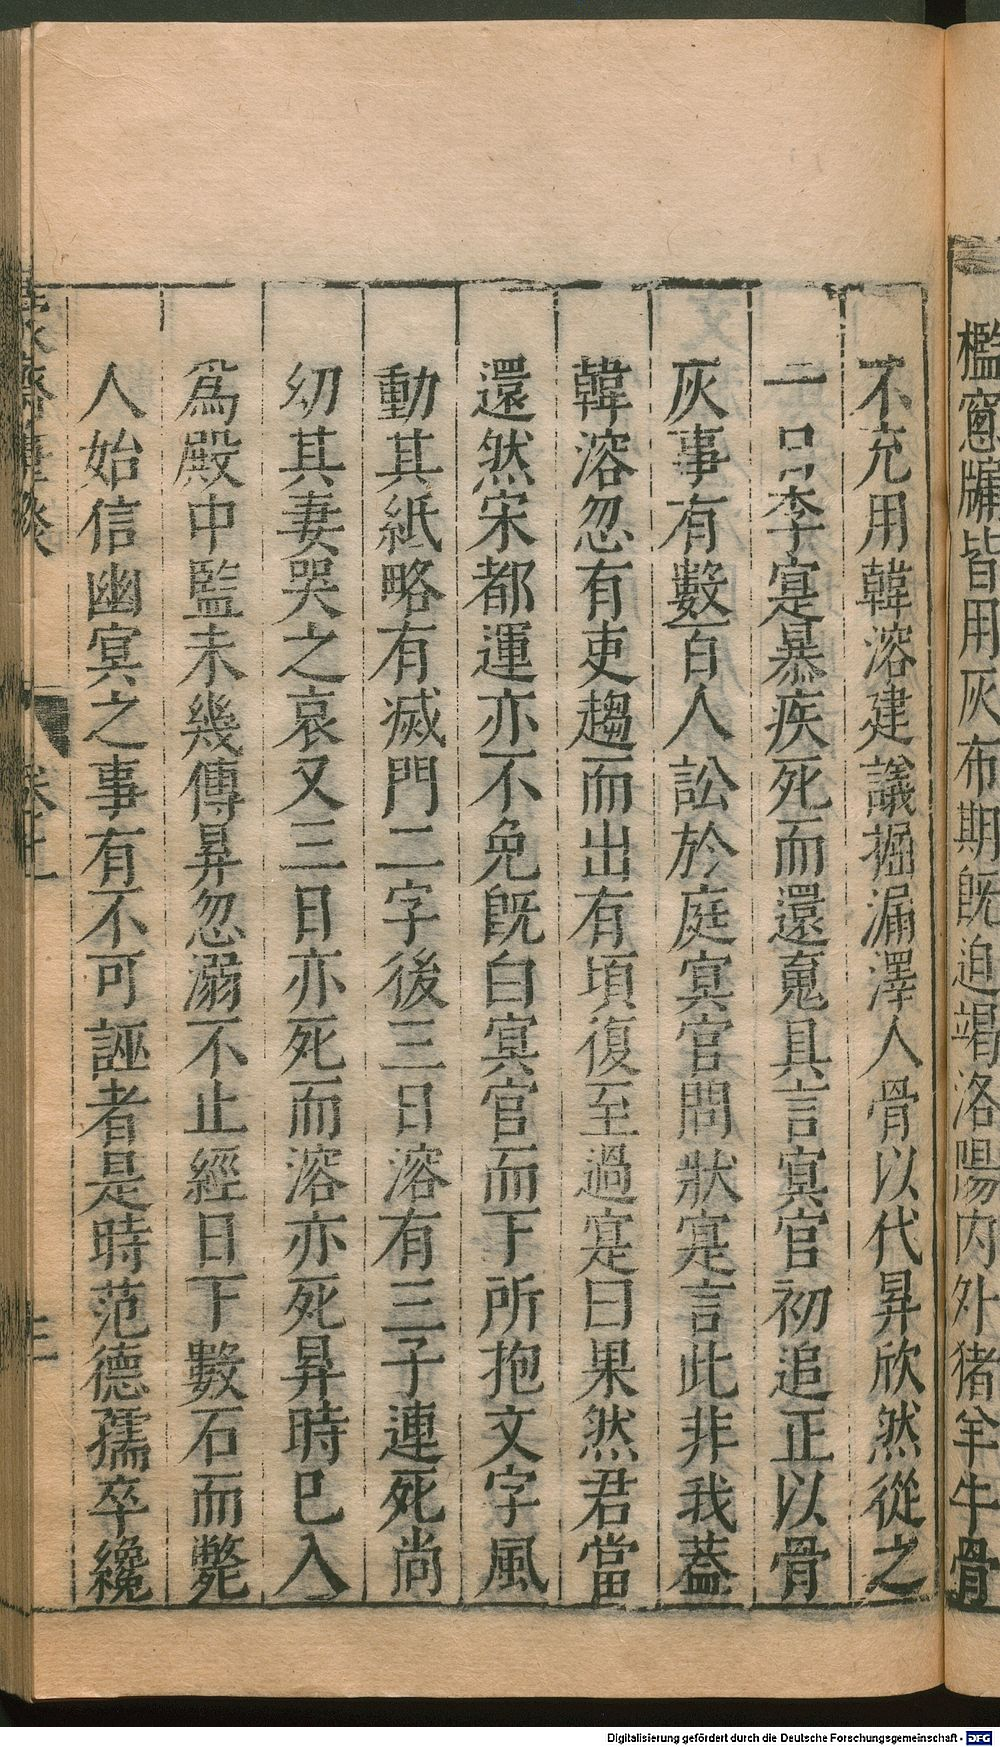 檻窻牖皆用灰布期既迫竭洛陽内外猪羊牛骨
不充用韓溶建議掘漏澤人骨以代昇欣然從之
一日李寔暴疾死而還䰟具言冥官初追正以骨
灰事有數百人訟於庭冥官問狀寔言此非我蓋
韓溶忽有吏趨而出有頃復至過寔曰果然君當
還然宋都運亦不免既白冥官而下所抱文字風
動其紙略有滅門二字後三日溶有三子連死尚
幼其妻哭之哀又三日亦死而溶亦死昇時已入
爲殿中監未幾傳昇忽溺不止經日下數石而斃
人始信幽冥之事有不可誣者是時范德孺卒纔
卷十
三
Digitalisierung gefördert durch die Deutsche Forschungsgemeinschaft - DFG